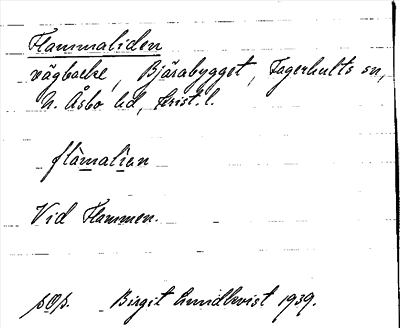 Flammaliden
vägbacke, Bjärabygget, Fagerhults sn,
N. Åsbo hd, Krist. l.
flàmalian
Vid Flammen.
Birgit Lundkvist 1939.